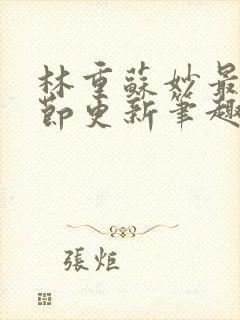 林重蘇妙最
節更新筆趣
張炬